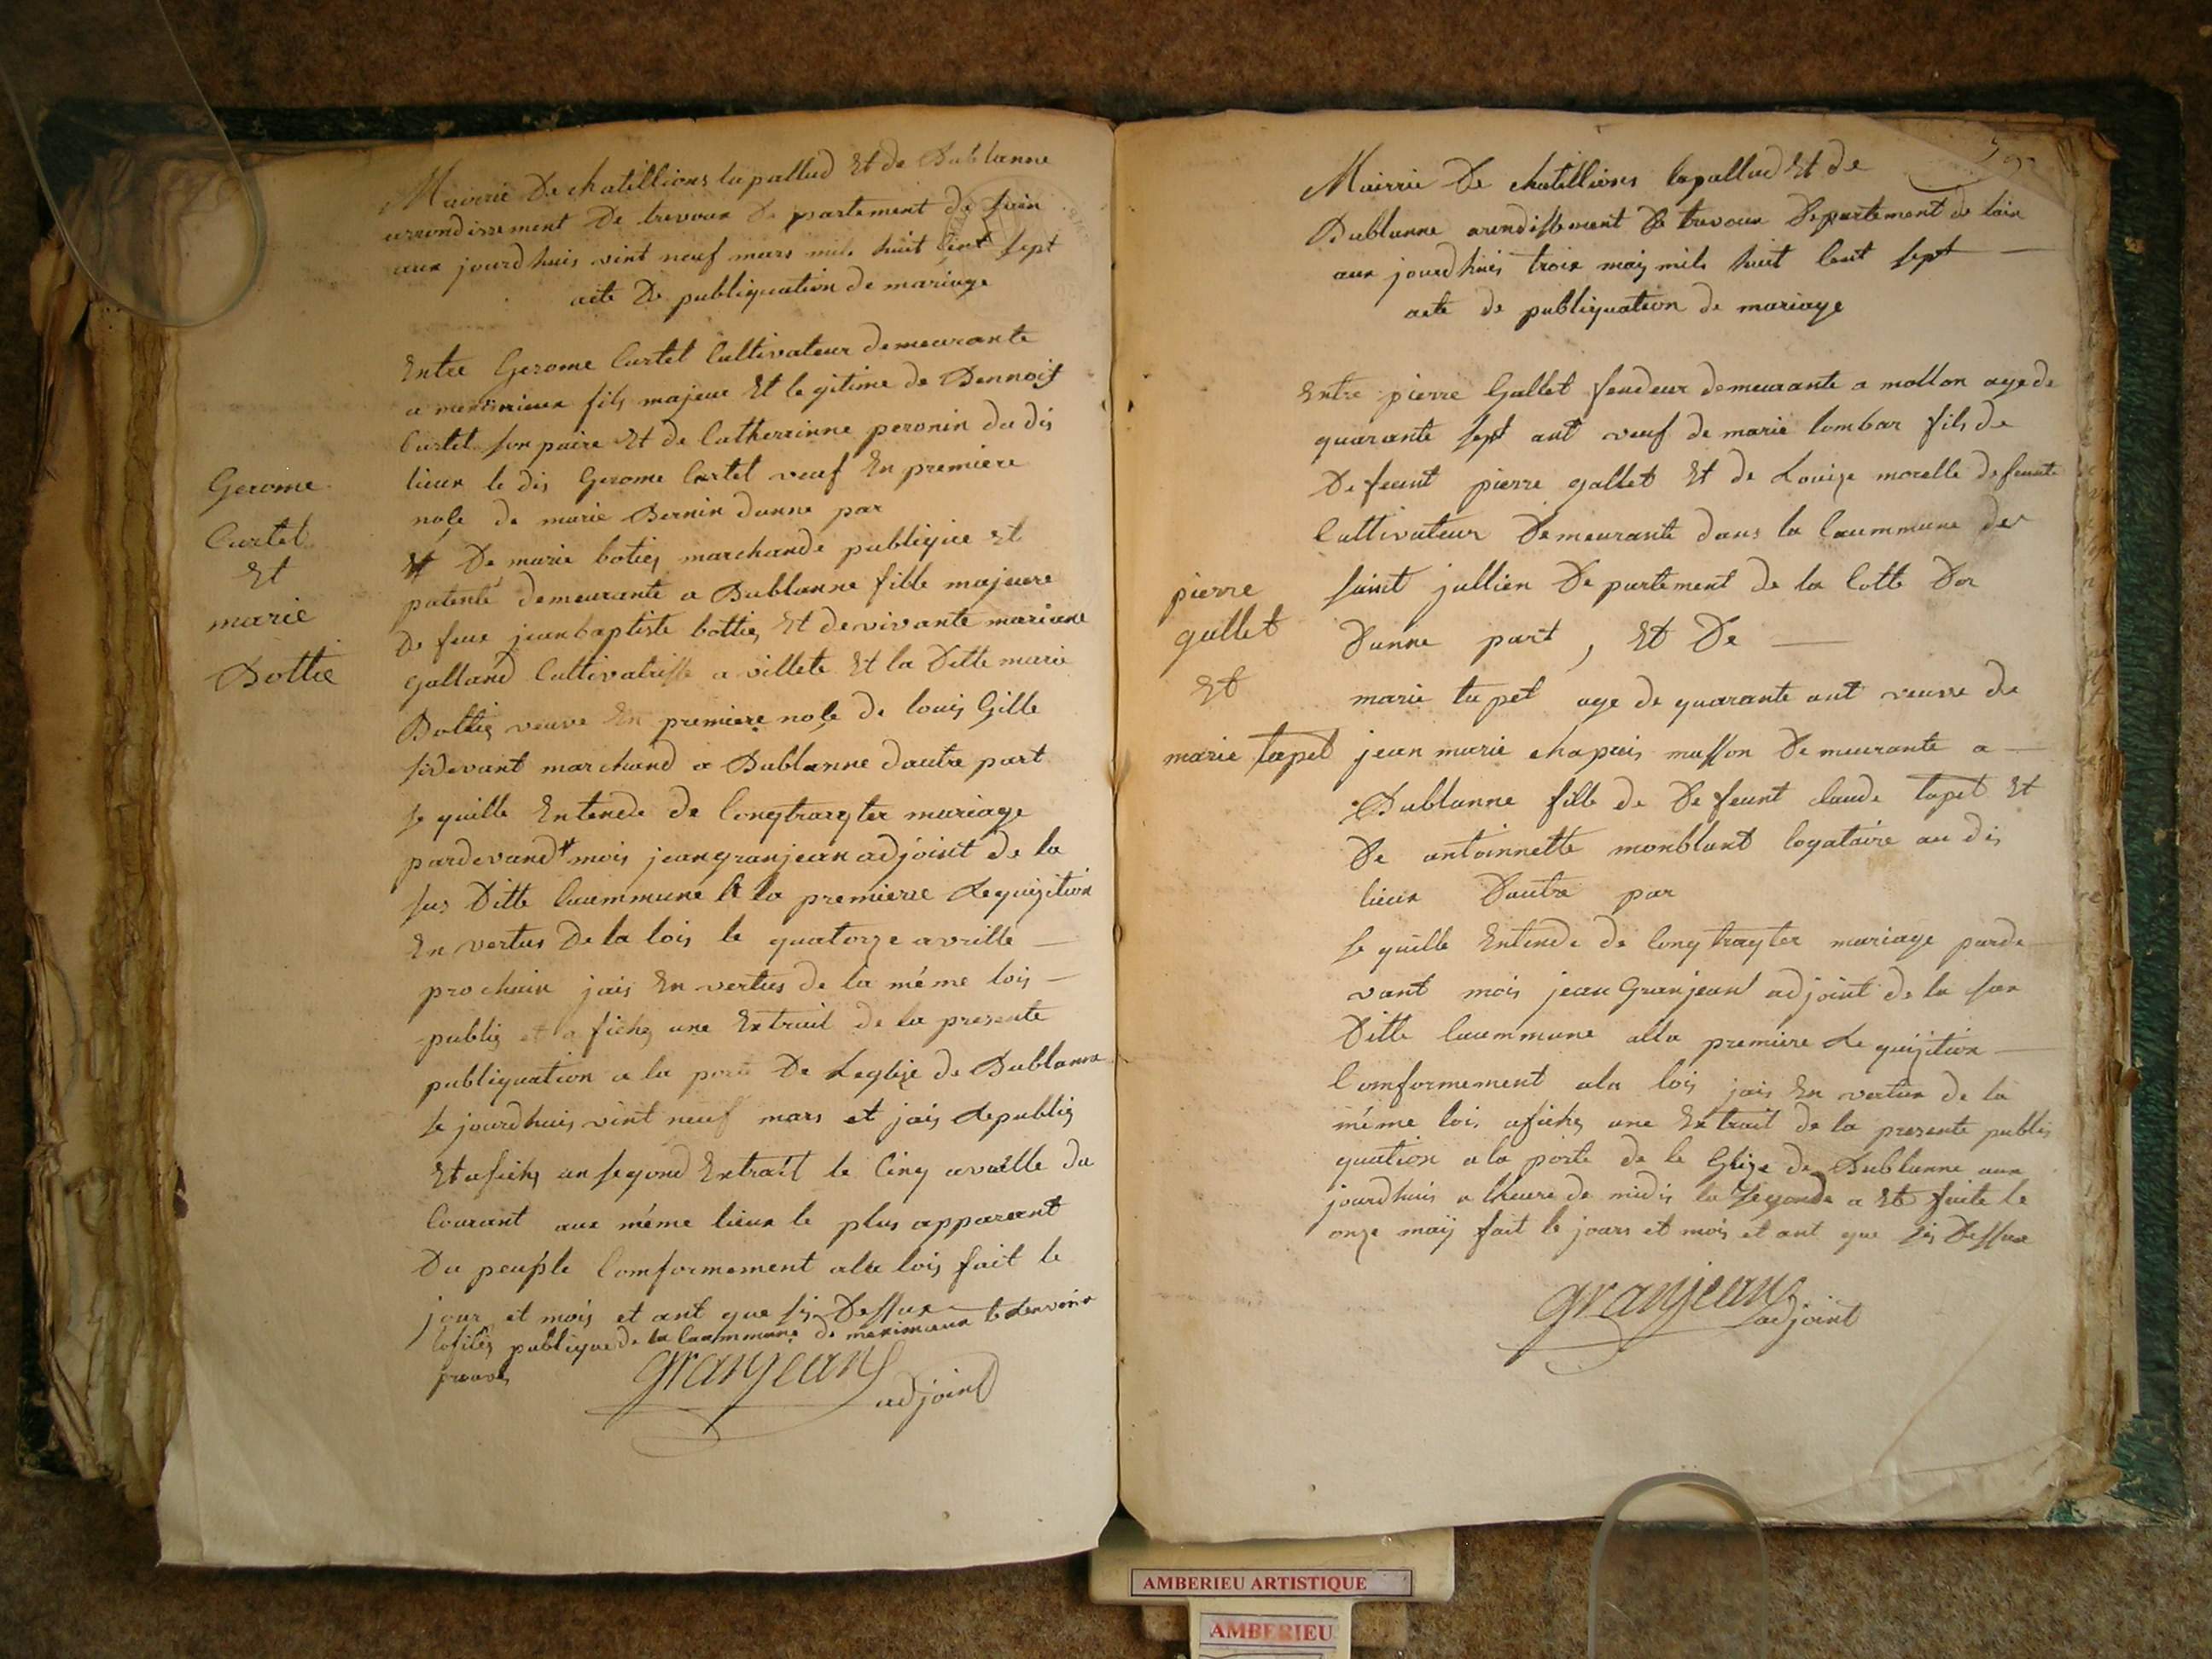 Mairrie De chatillions lapallud Et de Dublanne
arrondissement De trevoux De partement de lain
aux jourdhuis vint neuf mars mils huit Cent sept
acte De publiquation de mariage
Gerome
Curtel
Et
marie
Bottie
Entre Gerome Curtel Cultivateur demeurante
a meximieux fils majeur Et legitime de Bennoit
Curtel son paire Et de Catherrinne peronin du dis
lieux le dis Gerome Curtel veuf En premiere
nose de marie Bernin dunne par
Et De marie boties marchande publique et
patenté demeurante a Dublanne fille majeure
De feux jeanbaptiste botties Et de vivante mariane
galland Cultivatrisse a villete Et la Ditte marie
Botties veuve En premiere nose de louis Gille
sidevant marchand a Dublanne dautre part
se quille Entende de Congtragter mariage
pardevand mois jeangranjean adjoint de la
sus Ditte Caummune A la premierre Requizition
En vertus De la lois le quatorze avrille
prochain jais En vertus de la méme lois
publis et a fiches une Extrait de la presente
publiquation a la porte De Leglize de Dublanne
se jourdhuis vint neuf mars et jais Republis
Et afiches un segond Extrait le Cinq avrille du
Courant aux méme lieux le plus apparant
Du peuple Comformement ala lois fait le
jour et mois et ant que sis Dessux
lofiies publique de la Caummune de meximieux
granjean
adjoint
Mairrie De chatillions lapallud Et de
Dublanne arendissement De trevoux Departement de lain
aux jourdhuis troix mais mils huit Cent sept
acte de publiquation de mariage
pierre
gallet
Et
marie tapet
Entre pierre Gallet fendeur demeurante a mollon age de
quarante sept ant veuf de marie lombar fils de
De feunt pierre gallet Et de Louize morelle defeunte
Cultivateur Demeurante dans la Caummune de
saint jullien De partement de la Cotte Dor
Dunne part, Et De
marie tapet age de quarante ant veuve de
jean marie chapuis masson Demeurante a
Dublanne fille de De feunt claude tapet Et
De antoinnette monblant logataire au dis
lieux Dautre par
se quille Entende de Congtragter mariage parde
vant mois jean Granjean adjoint de la sus
Ditte Caummune alla premiere Requizition
Comformement ala lois jais En vertux de la
méme lois afiches une Extrait de la presente publis
quation a la porte de le Glize de Dublanne aux
jourdhuis a lheure de midis la Segonde a Eté faite le
onze maij fait le jours et mois et ant que sis Dessux
granjean
adjoint
AMBERIEU ARTISTIQUE
AMBERIEU